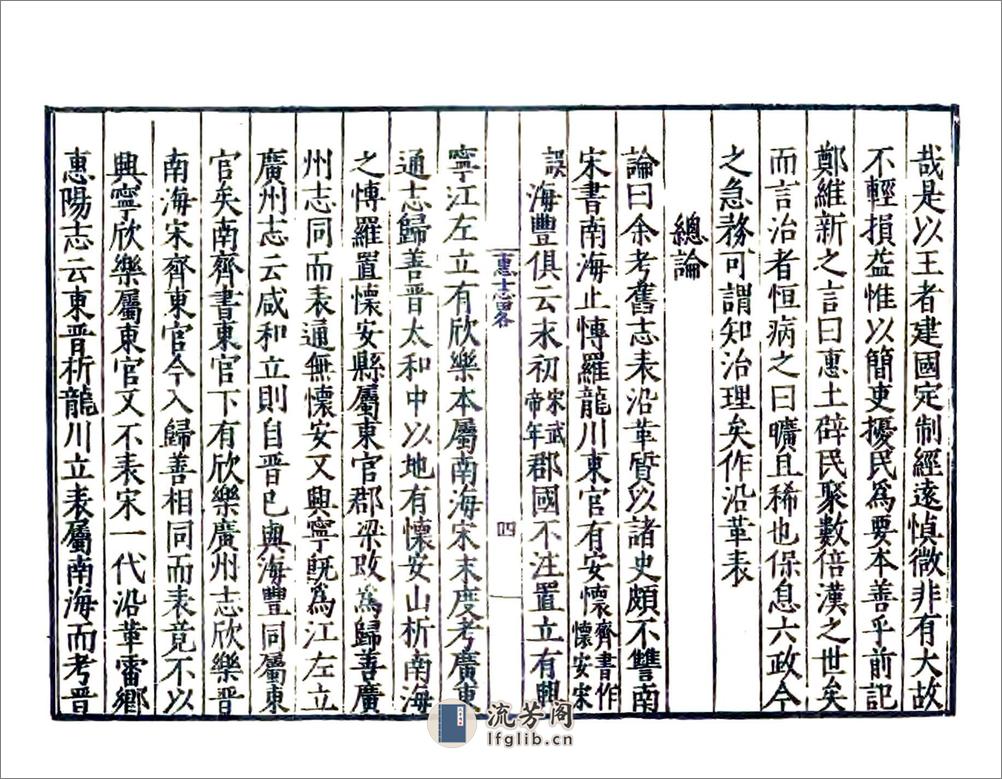 哉是以王者建國定制經遠慎微非有大故
不輕損益惟以簡吏擾民為要本善乎前記
鄭維新之言曰惠土辟民聚數倍漢之世矣
而言治者恒病之曰曠且稀也保息六政今
之急務可謂知治理矣作沿革表
總論
論曰余考舊志表沿革質以諸史頗不讐南
宋書南海止愽羅龍川東官有安懷齊書作懷安宋
誤海豐俱云永初宋武帝年郡國不注置立有興
惠志畧 四
寧江左立有欣樂本屬南海宋末度考廣東
通志歸善晋太和中以地有懷安山析南海
之愽羅置懷安縣屬東官郡梁改為歸善廣
州志同而表通無懷安又興寧既為江左立
廣州志云咸和立則自晋已與海豐同屬東
官矣南齊書東官下有欣樂廣州志欣樂晋
南海宋齊東官今入歸善相同而表竟不以
興寧欣樂屬東官又不表宋一代沿革甯鄉
惠陽志云東晋析龍川立表屬南海而考晋
流芳阁
lfglib.cn